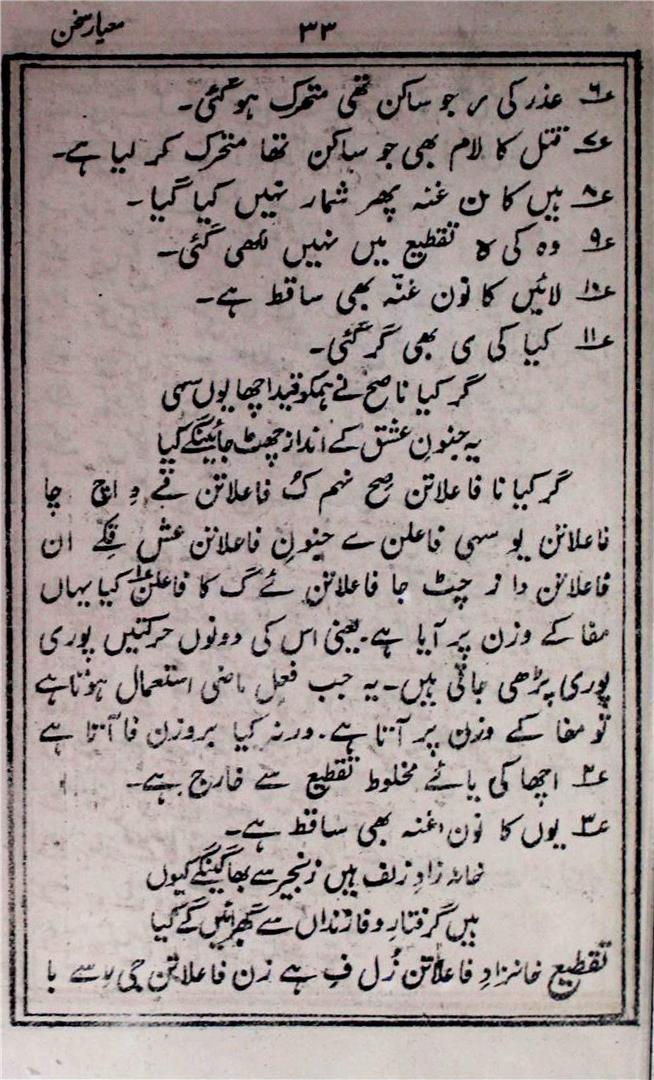 معیار سخن
۳۳
ع۶ عذر کی ر جو ساکن تھی متحرک ہو گئی۔
ع۷ قتل کا لام بھی جو ساکن تھا متحرک کر لیا ہے۔
ع۸ ہیں کا ن غنہ پھر شمار نہیں کیا گیا۔
ع۹ وہ کی ہ تقطیع میں نہیں لکھی گئی۔
ع۱۰ لائیں کا نون غنّہ بھی ساقط ہے۔
ع۱۱ کیا کی ی بھی گر گئی۔
گر کیا ناصح نے ہمکو قید اچھا یوں سہی
یہ جنونِ عشق کے انداز چھٹ جائینگے کیا
گر کیا نا فاعلاتن صِح نہم کُ فاعلاتن قے دِ اچ چا
فاعلاتن یو سہی فاعلن ے جنونِ فاعلاتن عش قِکے ان
فاعلاتن دا ز چٹ جا فاعلاتن ئے گ کا فاعلن ع۱ کیا یہاں
مفا کے وزن پر آیا ہے۔ یعنی اس کی دونوں حرکتیں پوری
پوری پڑھی جاتی ہیں۔ یہ جب فعل ماضی استعمال ہوتا ہے
تو مفا کے وزن پر آتا ہے۔ ورنہ کیا بروزن فا آتا ہے
ع۲ اچھا کی ہائے مخلوط تقطیع سے خارج ہے۔
ع۳ یوں کا نون غنہ بھی ساقط ہے۔
خانہ زادِ زلف ہیں زنجیر سے بھاگینگے کیوں
ہیں گرفتارِ وفا زنداں سے گھبرائیں گے کیا
تقطیع خانزادِ فاعلاتن زُل فِ ہے زن فاعلاتن جی ر سے با